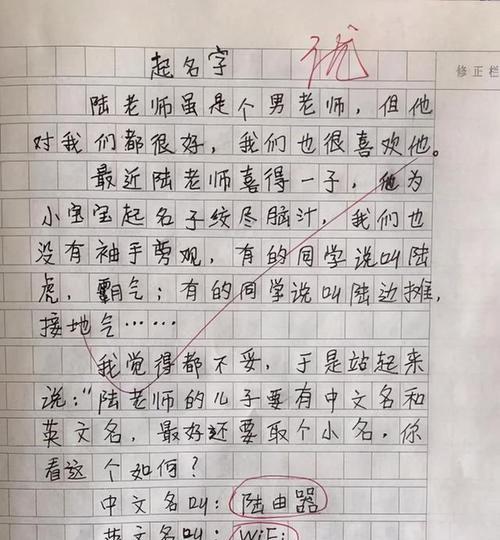 起名字
优
修正栏
陆老师虽是个男老师，但他
对我们都很好，我们也很喜欢他。
最近陆老师喜得一子，他为
小宝宝起名子绞尽脑汁，我们也
没有袖手旁观，有的同学说叫陆
虎，霸气；有的同学说叫陆边摊，
接地气……
我觉得都不妥，于是站起来
说：“陆老师的儿子要有中文名和
英文名，最好还要取个小名，你
看这个如何？
中文名叫：陆由器
英文名叫：WiFi